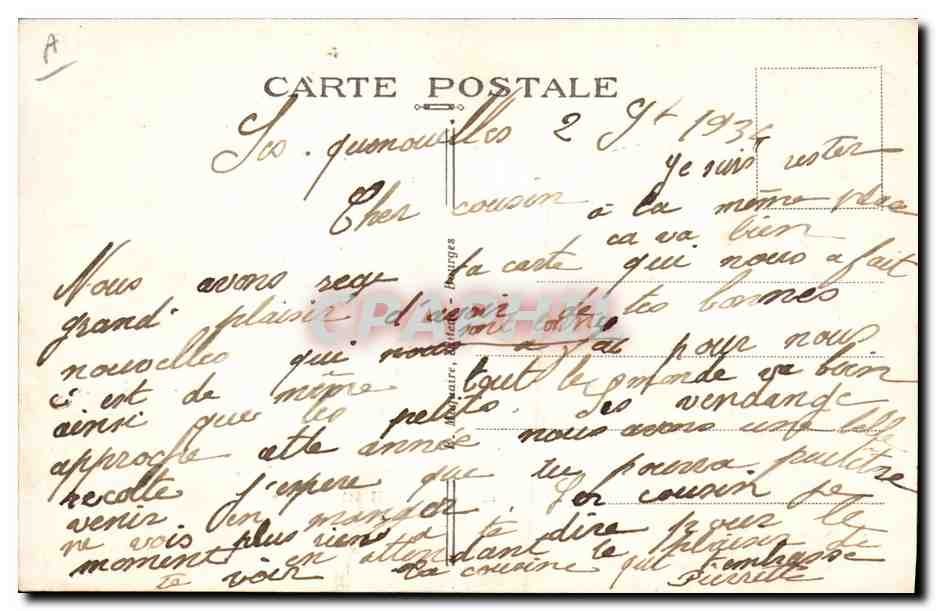 A
CARTE POSTALE
Les quenouilles 2 St 1934
Je suis rester
à la même place
ca va bien
Cher cousin
Nous avons reçu ta carte qui nous a fait
grand plaisir d'avoir de tes bonnes
nouvelles qui sont bonnes pour nous
c est de même tout le monde va bien
ainsi que les petits. Les vendange
approche cette année nous avons une belle
recolte j'espere que tu pourra peutêtre
venir en manger. Cher cousin je
ne vois plus rien a te dire pour le
moment en attendant le plaisir de
te voir Ta cousine qui t'embrasse
Pierrette
Bourges
CPAPHIL